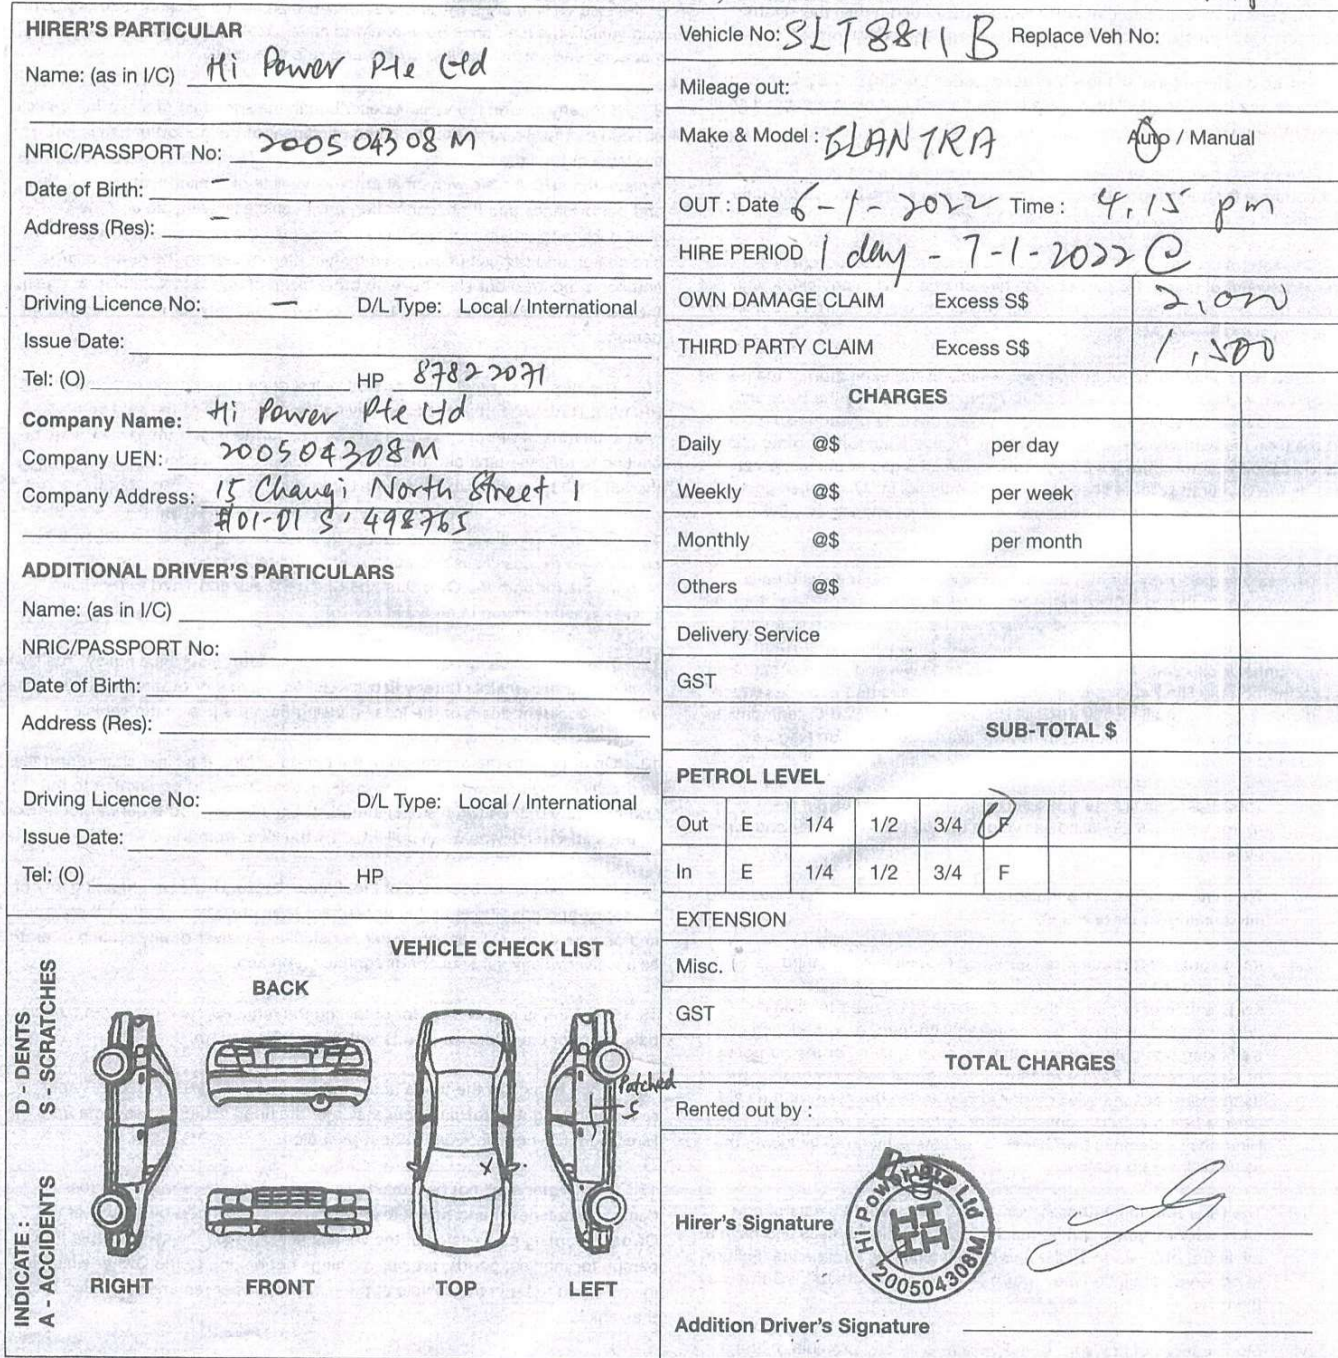 HIRER'S PARTICULAR
Name: (as in I/C) Hi Power Pte Ltd
NRIC/PASSPORT No: 200504308M
Date of Birth: –
Address (Res): –
Driving Licence No: – D/L Type: Local / International
Issue Date:
Tel: (O) HP 87822071
Company Name: Hi Power Pte Ltd
Company UEN: 200504308M
Company Address: 15 Changi North Street 1
#01-01 S. 498765
ADDITIONAL DRIVER'S PARTICULARS
Name: (as in I/C)
NRIC/PASSPORT No:
Date of Birth:
Address (Res):
Driving Licence No: D/L Type: Local / International
Issue Date:
Tel: (O) HP
VEHICLE CHECK LIST
BACK
Patched
S
X
RIGHT FRONT TOP LEFT
INDICATE :
D - DENTS
A - ACCIDENTS S - SCRATCHES
Vehicle No: SLT8811B Replace Veh No:
Mileage out:
Make & Model : ELANTRA Auto / Manual
OUT : Date 6-1-2022 Time : 4.15 pm
HIRE PERIOD 1 day - 7-1-2022 @
OWN DAMAGE CLAIM Excess S$ 2,000
THIRD PARTY CLAIM Excess S$ 1,500
CHARGES
Daily @$ per day
Weekly @$ per week
Monthly @$ per month
Others @$
Delivery Service
GST
SUB-TOTAL $
PETROL LEVEL
Out E 1/4 1/2 3/4 F
In E 1/4 1/2 3/4 F
EXTENSION
Misc.
GST
TOTAL CHARGES
Rented out by :
Hirer's Signature
Hi-Power Pte Ltd
200504308M
Addition Driver's Signature